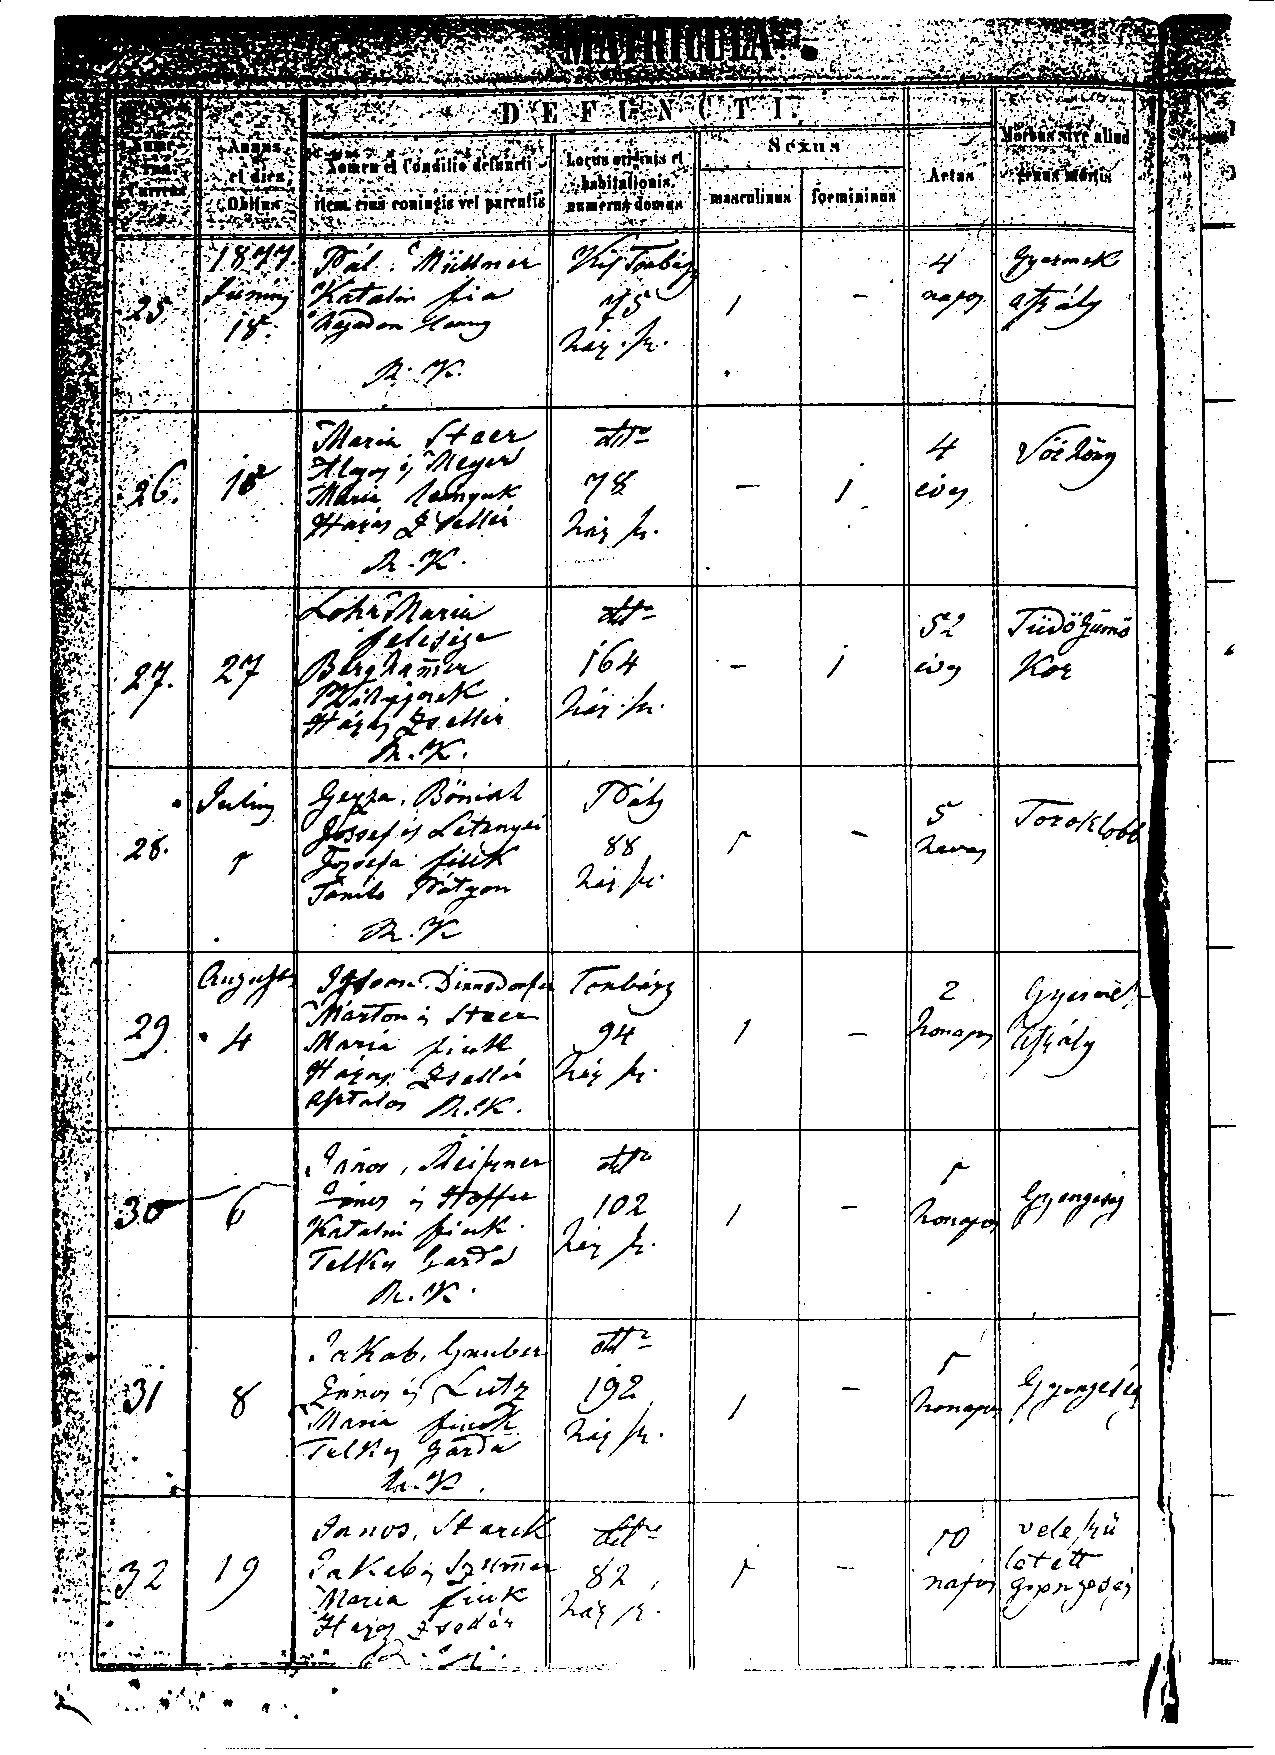 MATRICULA.
DEFUNCTI.
Nume-
rus
Currens
Annus
et dies
Obitus
Nomen et Conditio defuncti
item ejus conjugis vel parentis
Locus originis et
habitationis,
numerus domus
Sexus
masculinus
foemininus
Aetas
Morbus sive aliud
genus mortis
25
1877
Június
18.
Pál. Müllner
Katalin fia
R. K.
Kis Torbágy
75
ház sz.
1
–
4
napos
Gyermek
aszály
26.
18
Maria Staer
Alajos és Meyer
Mária
Házas Zsellér
R. K.
dtto
78
ház sz.
–
1
4
éves
Vörheny
27.
27
Lohr Maria
felesége
Bergham̄er
Házas Zsellér
R. K.
dtto
164
ház sz.
–
1
52
éves
Tüdőgümő
Kór
28.
Julius
1
Geyza. Böniah
Jossef és Letenyei
Jozefa fiuk
Tanító Pátyon
R. K.
Páty
88
ház sz.
1
–
5
haves
Toroklobb
29.
August
4
Dinnsdorfer
Márton és Staer
Mária fiuk
Házas Zsellér
asztalos R. K.
Torbágy
94
ház sz.
1
–
2
honapos
Gyermek
aszály
30
6
János, Reiszner
János és Hoffer
Katalin fiuk.
Telkes Gazda
R. K.
dtto
102
ház sz.
1
–
1
honapos
Gyengeség
31
8
Jakab, Gauber
János és Lutz
Maria fiuk
Telkes Gazda
R. K.
dtto
192
ház sz.
1
–
1
honapos
Gyengeség
32
19
Janos, Starck
Jakab és
Maria fiuk
Házas Zsellér
R. K.
dtto
82
ház sz.
1
–
10
napos
vele szü
letett
gyengeség